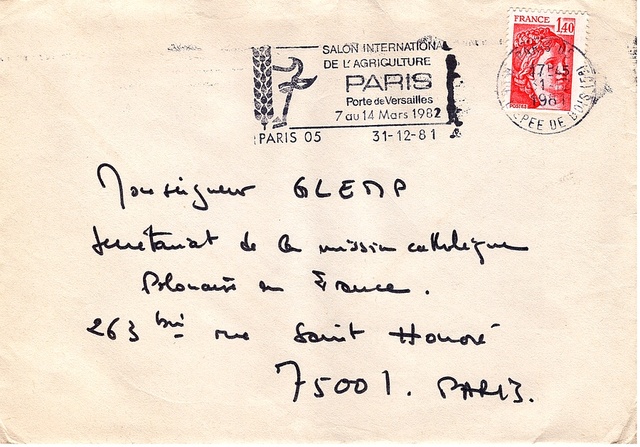 SALON INTERNATIONAL
DE L'AGRICULTURE
PARIS
Porte de Versailles
7 au 14 Mars 1982
PARIS 05 31-12-81
FRANCE 1,40
POSTES
17H45
1981
EPEE DE BOIS (5E)
Monseigneur GLEMP
Secrétariat de la mission catholique
Polonaise en France.
263 bis rue Saint Honoré
75001. PARIS.